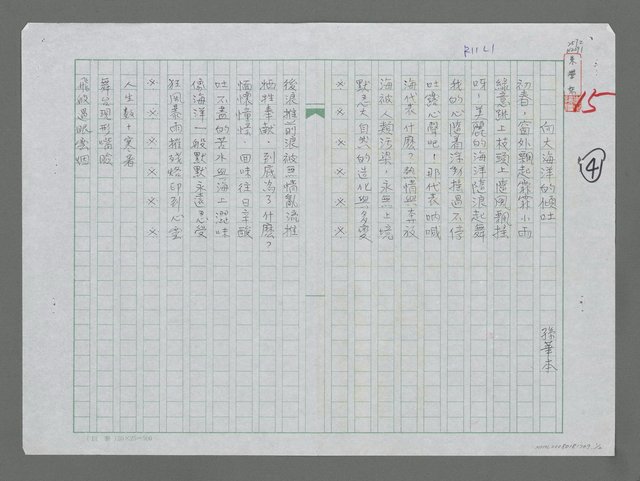 R11 L1
15
4
向大海洋的傾吐
孫華本
初春，窗外飄起霏霏小雨
綠意跳上枝頭上隨風飄搖
呀，美麗的海洋隨浪起舞
我的心隨着浮動搖過不停
吐露心聲吧！那代表吶喊
海代表什麼？熱情與奔放
海被人類污染，永無止境
默思大自然的造化與多變
× × × × ×
後浪推前浪被無情亂流推
犧牲奉献，到底為了什麼？
緬懷憧憬，回味往日辛酸
吐不盡的苦水與海上滋味
像海洋一般默默永遠忍受
狂風暴雨摧殘烙印到心靈
× × × × ×
人生數十寒暑
舞台現形當臉
飛般過眼雲烟
20×25=500